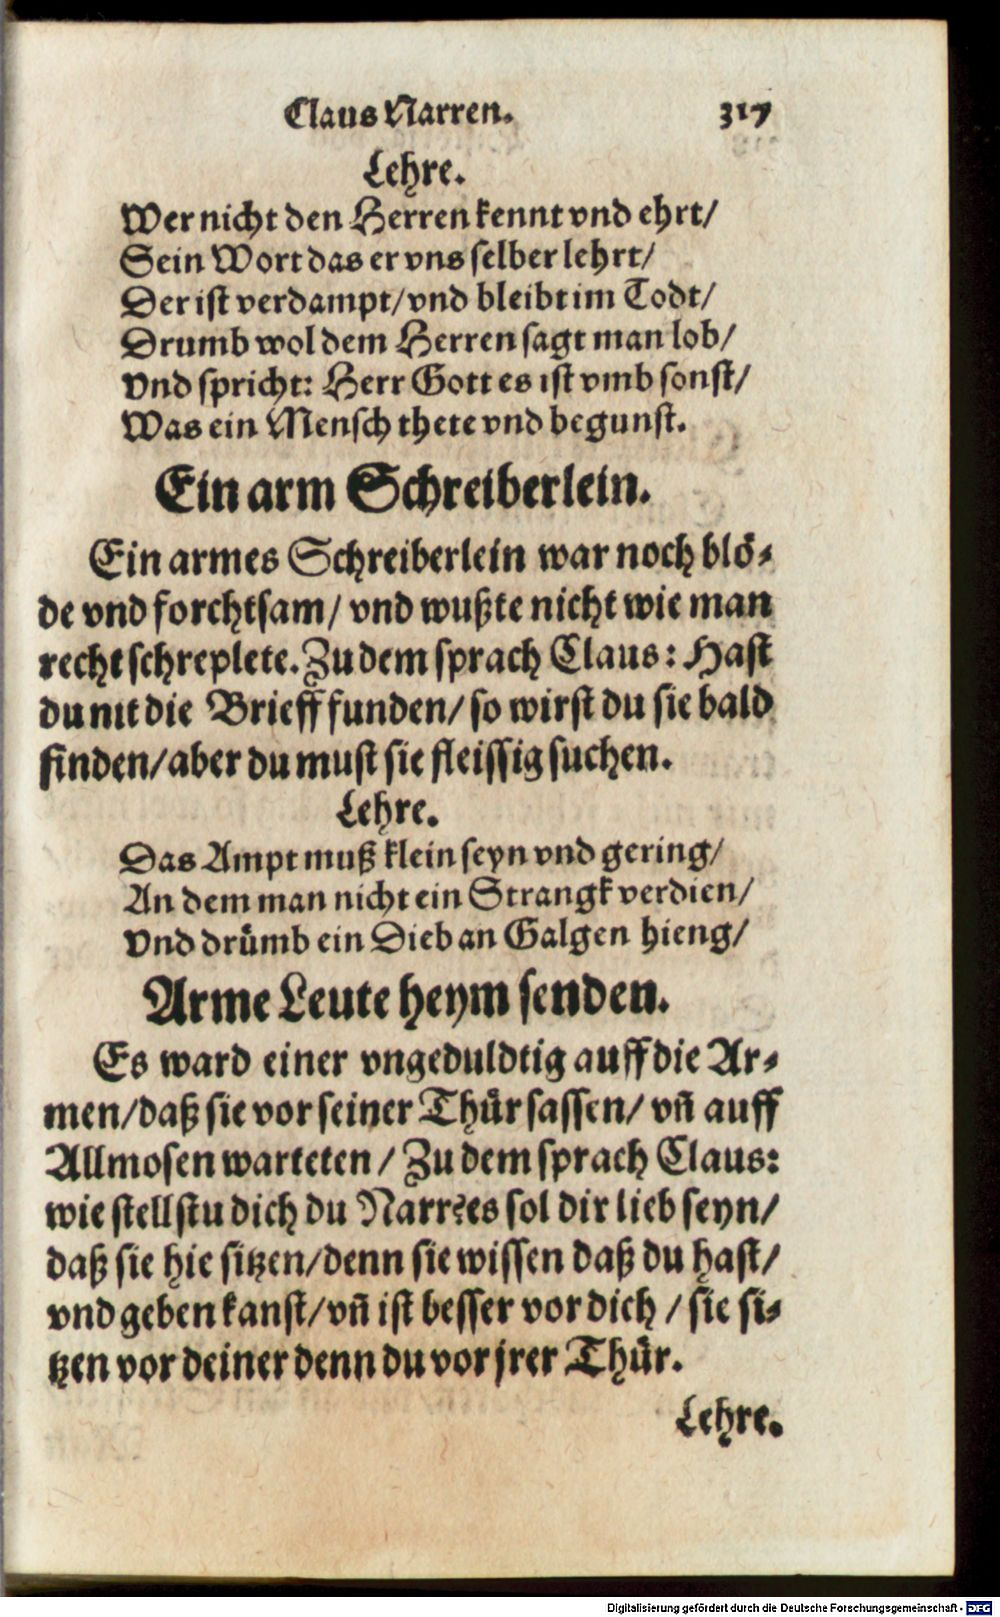 Claus Narren. 317
Lehre.
Wer nicht den Herren kennt vnd ehrt/
Sein Wort das er vns selber lehrt/
Der ist verdampt/vnd bleibt im Todt/
Drumb wol dem Herren sagt man lob/
Vnd spricht: Herr Gott es ist vmb sonst/
Was ein Mensch thete vnd begunst.
Ein arm Schreiberlein.
Ein armes Schreiberlein war noch blö-
de vnd forchtsam/ vnd wußte nicht wie man
recht schreplete. Zu dem sprach Claus: Hast
du nit die Brieff funden/ so wirst du sie bald
finden/aber du must sie fleissig suchen.
Lehre.
Das Ampt muß klein seyn vnd gering/
An dem man nicht ein Strangk verdien/
Vnd drümb ein Dieb an Galgen hieng/
Arme Leute heym senden.
Es ward einer vngeduldtig auff die Ar-
men/daß sie vor seiner Thür sassen/ vñ auff
Allmosen warteten / Zu dem sprach Claus:
wie stellstu dich du Narr? es sol dir lieb seyn/
daß sie hie sitzen/denn sie wissen daß du hast/
vnd geben kanst/vñ ist besser vor dich / sie si-
tzen vor deiner denn du vor jrer Thür.
Lehre.
Digitalisierung gefördert durch die Deutsche Forschungsgemeinschaft - DFG